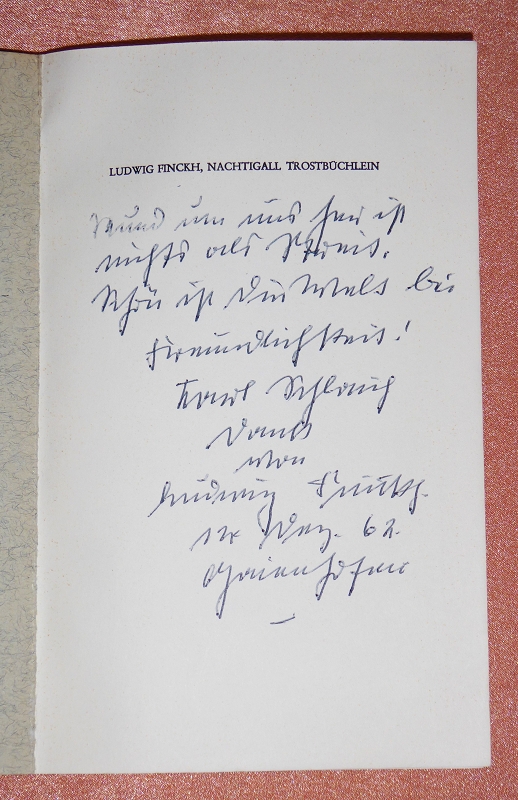 LUDWIG FINCKH, NACHTIGALL TROSTBÜCHLEIN
Rund um uns her ist
nichts als Streit.
Schön ist die Welt bei
Freundlichkeit!
Karl Schlauch
Dank
von
Ludwig Finckh.
Dez. 62.
Gaienhofen